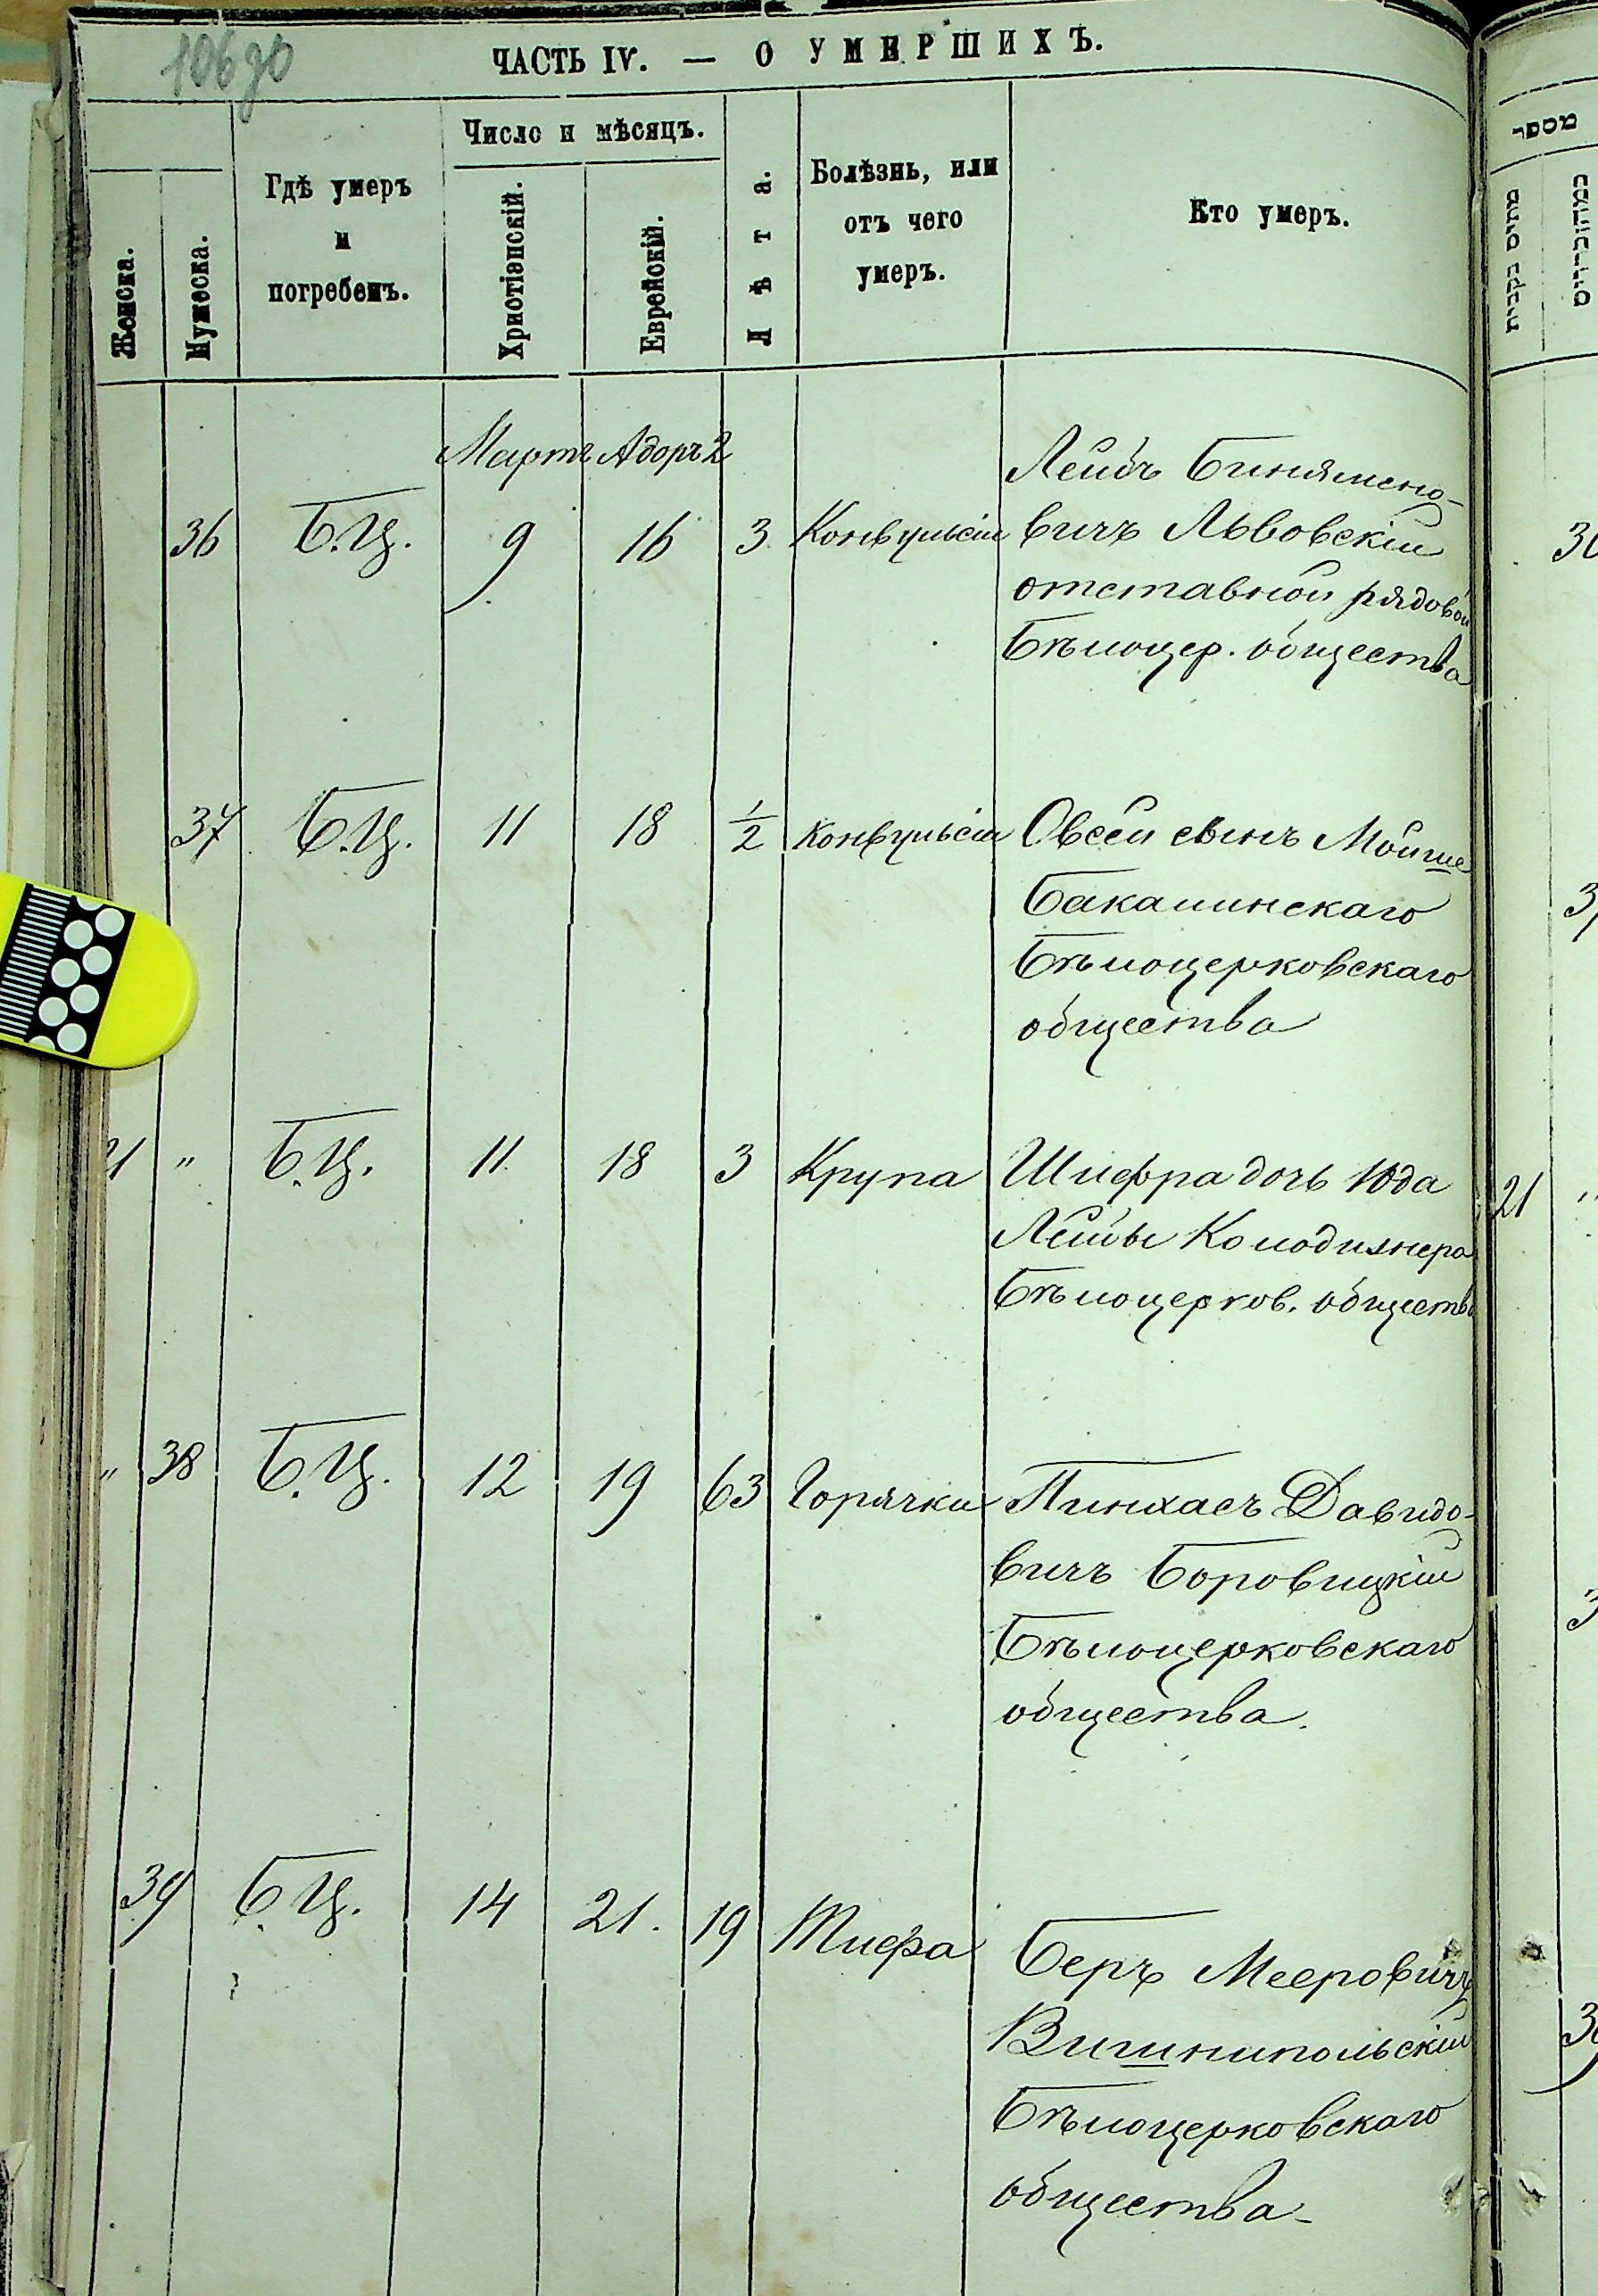 106 зв
ЧАСТЬ IV. — О УМЕРШИХЪ.
Женска.
Мужеска.
Гдѣ умеръ
и
погребенъ.
Число и мѣсяцъ.
Христіанскій.
Еврейскій.
Лѣта.
Болѣзнь, или
отъ чего
умеръ.
Кто умеръ.
Мартъ Адоръ 2
36 Б.Ц. 9 16 3 Конвульсіи
Лейбъ Бинямено-
вичъ Львовскій
отставной рядовой
Бѣлоцер. общества
37 Б.Ц. 11 18 1/2 Конвульсіи Овсей сынъ Мойше
Бакалинскаго
Бѣлоцерковскаго
общества
21 " Б.Ц. 11 18 3 Крупа Шифра дочь Юда
Лейбы Колодизнера
Бѣлоцерков. общества
" 38 Б.Ц. 12 19 63 Горячки Пинхасъ Давидо-
вичъ Боровицкій
Бѣлоцерковскаго
общества.
39 Б.Ц. 14 21. 19 Тифа
Беръ Мееровичъ
Вишнипольскій
Бѣлоцерковскаго
общества-
מספר
21 "